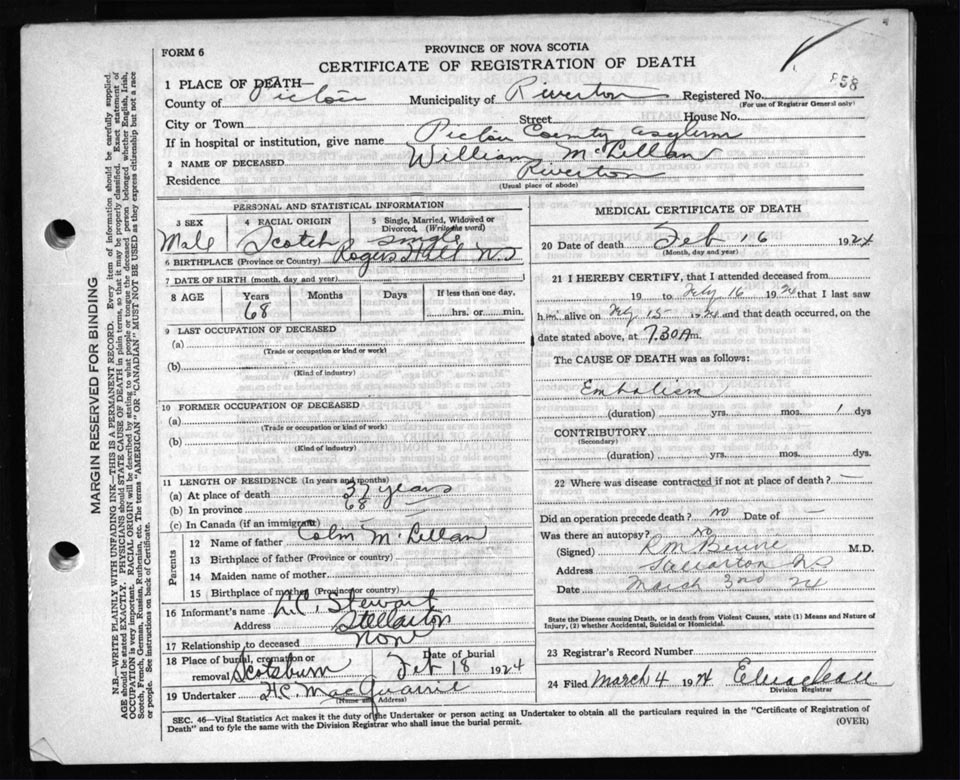 FORM 6
PROVINCE OF NOVA SCOTIA
CERTIFICATE OF REGISTRATION OF DEATH
858
1 PLACE OF DEATH—
County of Pictou Municipality of Riverton Registered No.
(For use of Registrar General only)
City or Town Street House No.
If in hospital or institution, give name Pictou County Asylum
2 NAME OF DECEASED William McLellan
Residence Riverton
(Usual place of abode)
PERSONAL AND STATISTICAL INFORMATION
3 SEX 4 RACIAL ORIGIN 5 Single, Married, Widowed or Divorced, (Write the word)
Male Scotch Single
6 BIRTHPLACE (Province or Country) Rogers Hill N.S
7 DATE OF BIRTH (month, day and year)
8 AGE Years Months Days If less than one day,
68 hrs. or min.
9 LAST OCCUPATION OF DECEASED
(a)
(Trade or occupation or kind or work)
(b)
(Kind of industry)
10 FORMER OCCUPATION OF DECEASED
(a)
(Trade or occupation or kind of work)
(b)
(Kind of industry)
11 LENGTH OF RESIDENCE (In years and months)
(a) At place of death 37 years
(b) In province 68
(c) In Canada (if an immigrant) — —
Parents
12 Name of father Colin McLellan
13 Birthplace of father (Province or country)
14 Maiden name of mother
15 Birthplace of mother (Province or country)
16 Informant's name Stewart
Address Stellarton
17 Relationship to deceased None
18 Place of burial, cremation or removal Scotsburn Date of burial Feb 18 1924
19 Undertaker MacQuarrie
(Name and Address)
MEDICAL CERTIFICATE OF DEATH
20 Date of death Feb 16 1924
(Month, day and year)
21 I HEREBY CERTIFY, that I attended deceased from
19 to Feby 16 1924 that I last saw
him alive on 15 1924 and that death occurred, on the
date stated above, at 7.30 A m.
The CAUSE OF DEATH was as follows:
Embolism
(duration) yrs. mos. 1 dys
CONTRIBUTORY
(Secondary)
(duration) yrs. mos. dys.
22 Where was disease contracted if not at place of death? —
Did an operation precede death? no Date of —
Was there an autopsy? No
(Signed) M.D.
Address Stellarton NS
Date March 3rd 24
State the Disease causing Death, or in death from Violent Causes, state (1) Means and Nature of
Injury, (2) whether Accidental, Suicidal or Homicidal.
23 Registrar's Record Number
24 Filed March 4 1924
Division Registrar
SEC. 46—Vital Statistics Act makes it the duty of the Undertaker or person acting as Undertaker to obtain all the particulars required in the "Certificate of Registration of
Death" and to fyle the same with the Division Registrar who shall issue the burial permit.
(OVER)
MARGIN RESERVED FOR BINDING
N.B.—WRITE PLAINLY WITH UNFADING INK—THIS IS A PERMANENT RECORD. Every item of information should be carefully supplied.
AGE should be stated EXACTLY. PHYSICIANS should STATE CAUSE OF DEATH in plain terms, so that it may be properly classified. Exact statement of
OCCUPATION is very important. RACIAL ORIGIN will be described by stating to what people or tongue the deceased person belonged whether English, Irish,
Scotch, French, German, Russian, Ruthenian, etc. The terms "AMERICAN" OR "CANADIAN" MUST NOT BE USED as they express citizenship but not a race
or people. See instructions on back of Certificate.